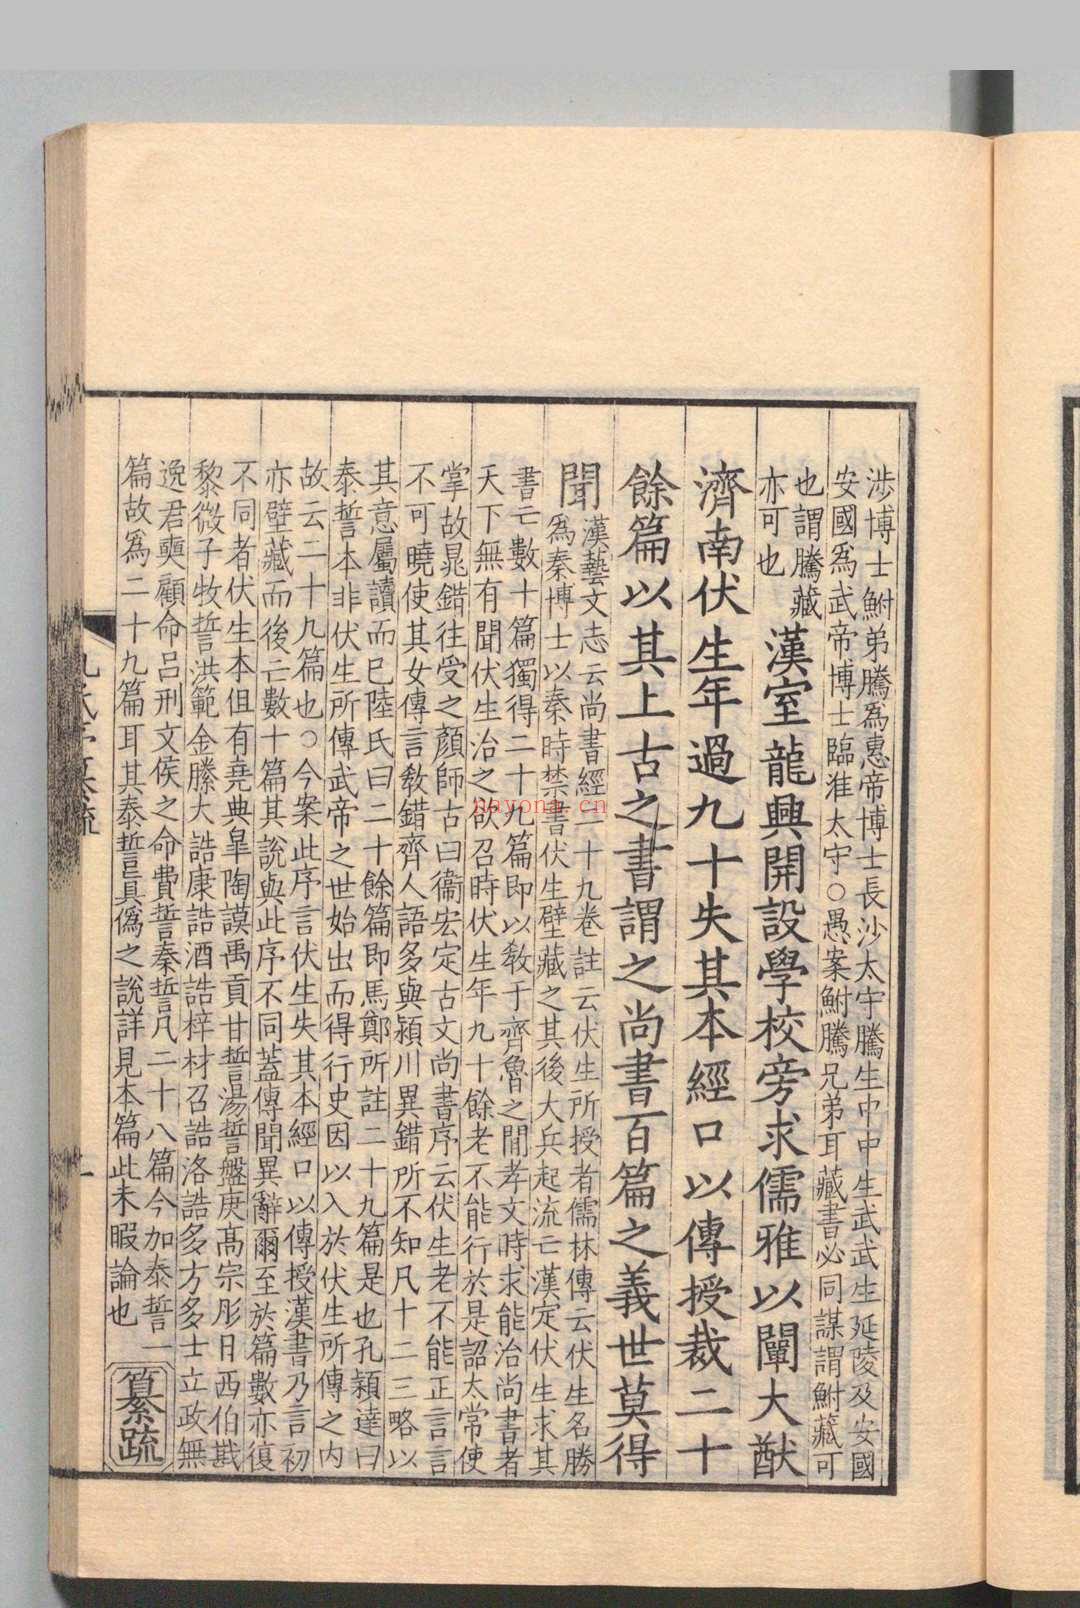 涉博士鮒弟騰爲惠帝博士長沙太守騰生中中生武武生延陵及安國
安國爲武帝博士臨淮太守○愚案鮒騰兄弟耳藏書必同謀謂鮒藏可
也謂騰藏
亦可也
漢室龍興開設學校旁求儒雅以闡大猷
濟南伏生年過九十失其本經口以傳授裁二十
餘篇以其上古之書謂之尚書百篇之義世莫得
聞
漢藝文志云尚書經二十九卷註云伏生所授者儒林傳云伏生名勝
爲秦博士以秦時禁書伏生壁藏之其後大兵起流亡漢定伏生求其
書亡數十篇獨得二十九篇即以敎于齊魯之閒孝文時求能治尚書者
天下無有聞伏生治之欲召時伏生年九十餘老不能行於是詔太常使
掌故晁錯往受之顏師古曰衞宏定古文尚書序云伏生老不能正言言
不可曉使其女傳言敎錯齊人語多與潁川異錯所不知凡十二三略以
其意屬讀而已陸氏曰二十餘篇即馬鄭所註二十九篇是也孔穎達曰
泰誓本非伏生所傳武帝之世始出而得行史因以入於伏生所傳之内
故云二十九篇也○今案此序言伏生失其本經口以傳授漢書乃言初
亦壁藏而後亡數十篇其說與此序不同蓋傳聞異辭爾至於篇數亦復
不同者伏生本但有堯典皐陶謨禹貢甘誓湯誓盤庚髙宗肜日西伯戡
黎微子牧誓洪範金縢大誥康誥酒誥梓材召誥洛誥多方多士立政無
逸君奭顧命呂刑文侯之命費誓秦誓凡二十八篇今加泰誓一
篇故爲二十九篇耳其泰誓眞僞之說詳見本篇此未暇論也
纂疏
nayona.cn